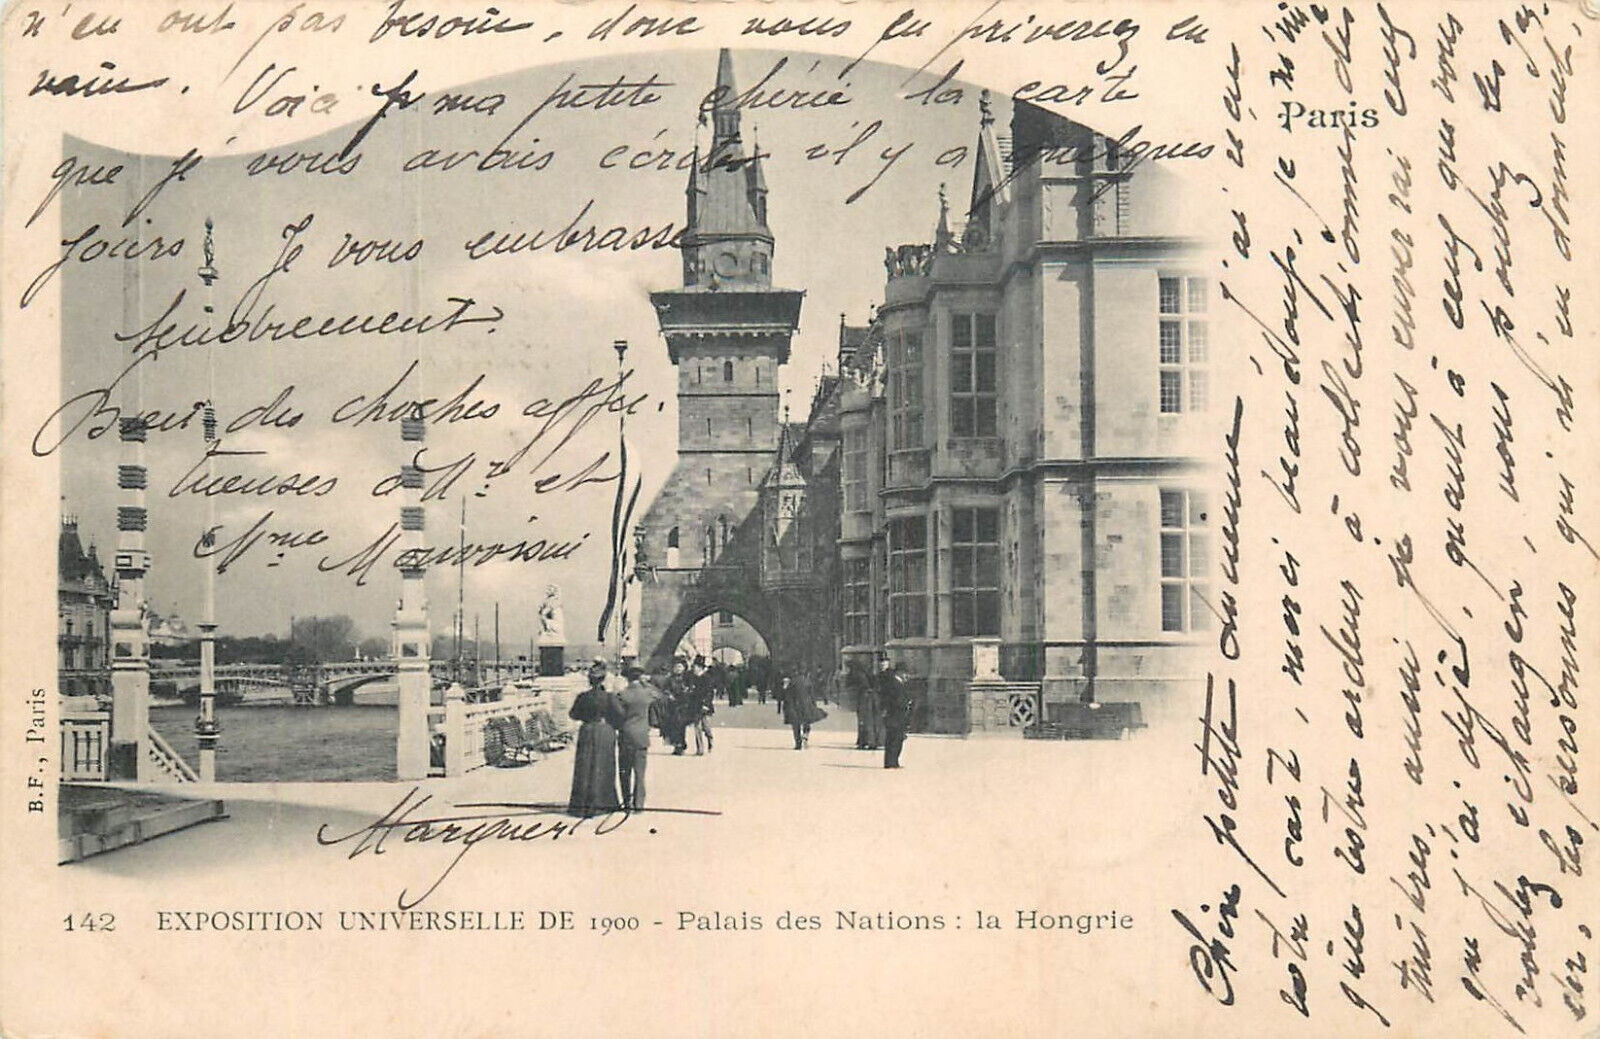 Paris
petite Germaine, j'ai reçu
votre carte, merci beaucoup, je
que votre ardeur à collectionner des
timbres, aussi je vous enverrai ceux
que j'ai déjà, quant à ceux que vous
voulez échanger, vous pouvez les gar-
der, les personnes qui m'en donnent,
n'en ont pas besoin, donc vous en priveriez en
vain. Voici ma petite chérie la carte
que j' vous avais écrite il y a quelques
jours Je vous embrasse
tendrement.
Bien des choses affec-
tueuses à Mr et
Mme Monvoisin
Marguerite.
B.F., Paris
142 EXPOSITION UNIVERSELLE DE 1900 - Palais des Nations : la Hongrie